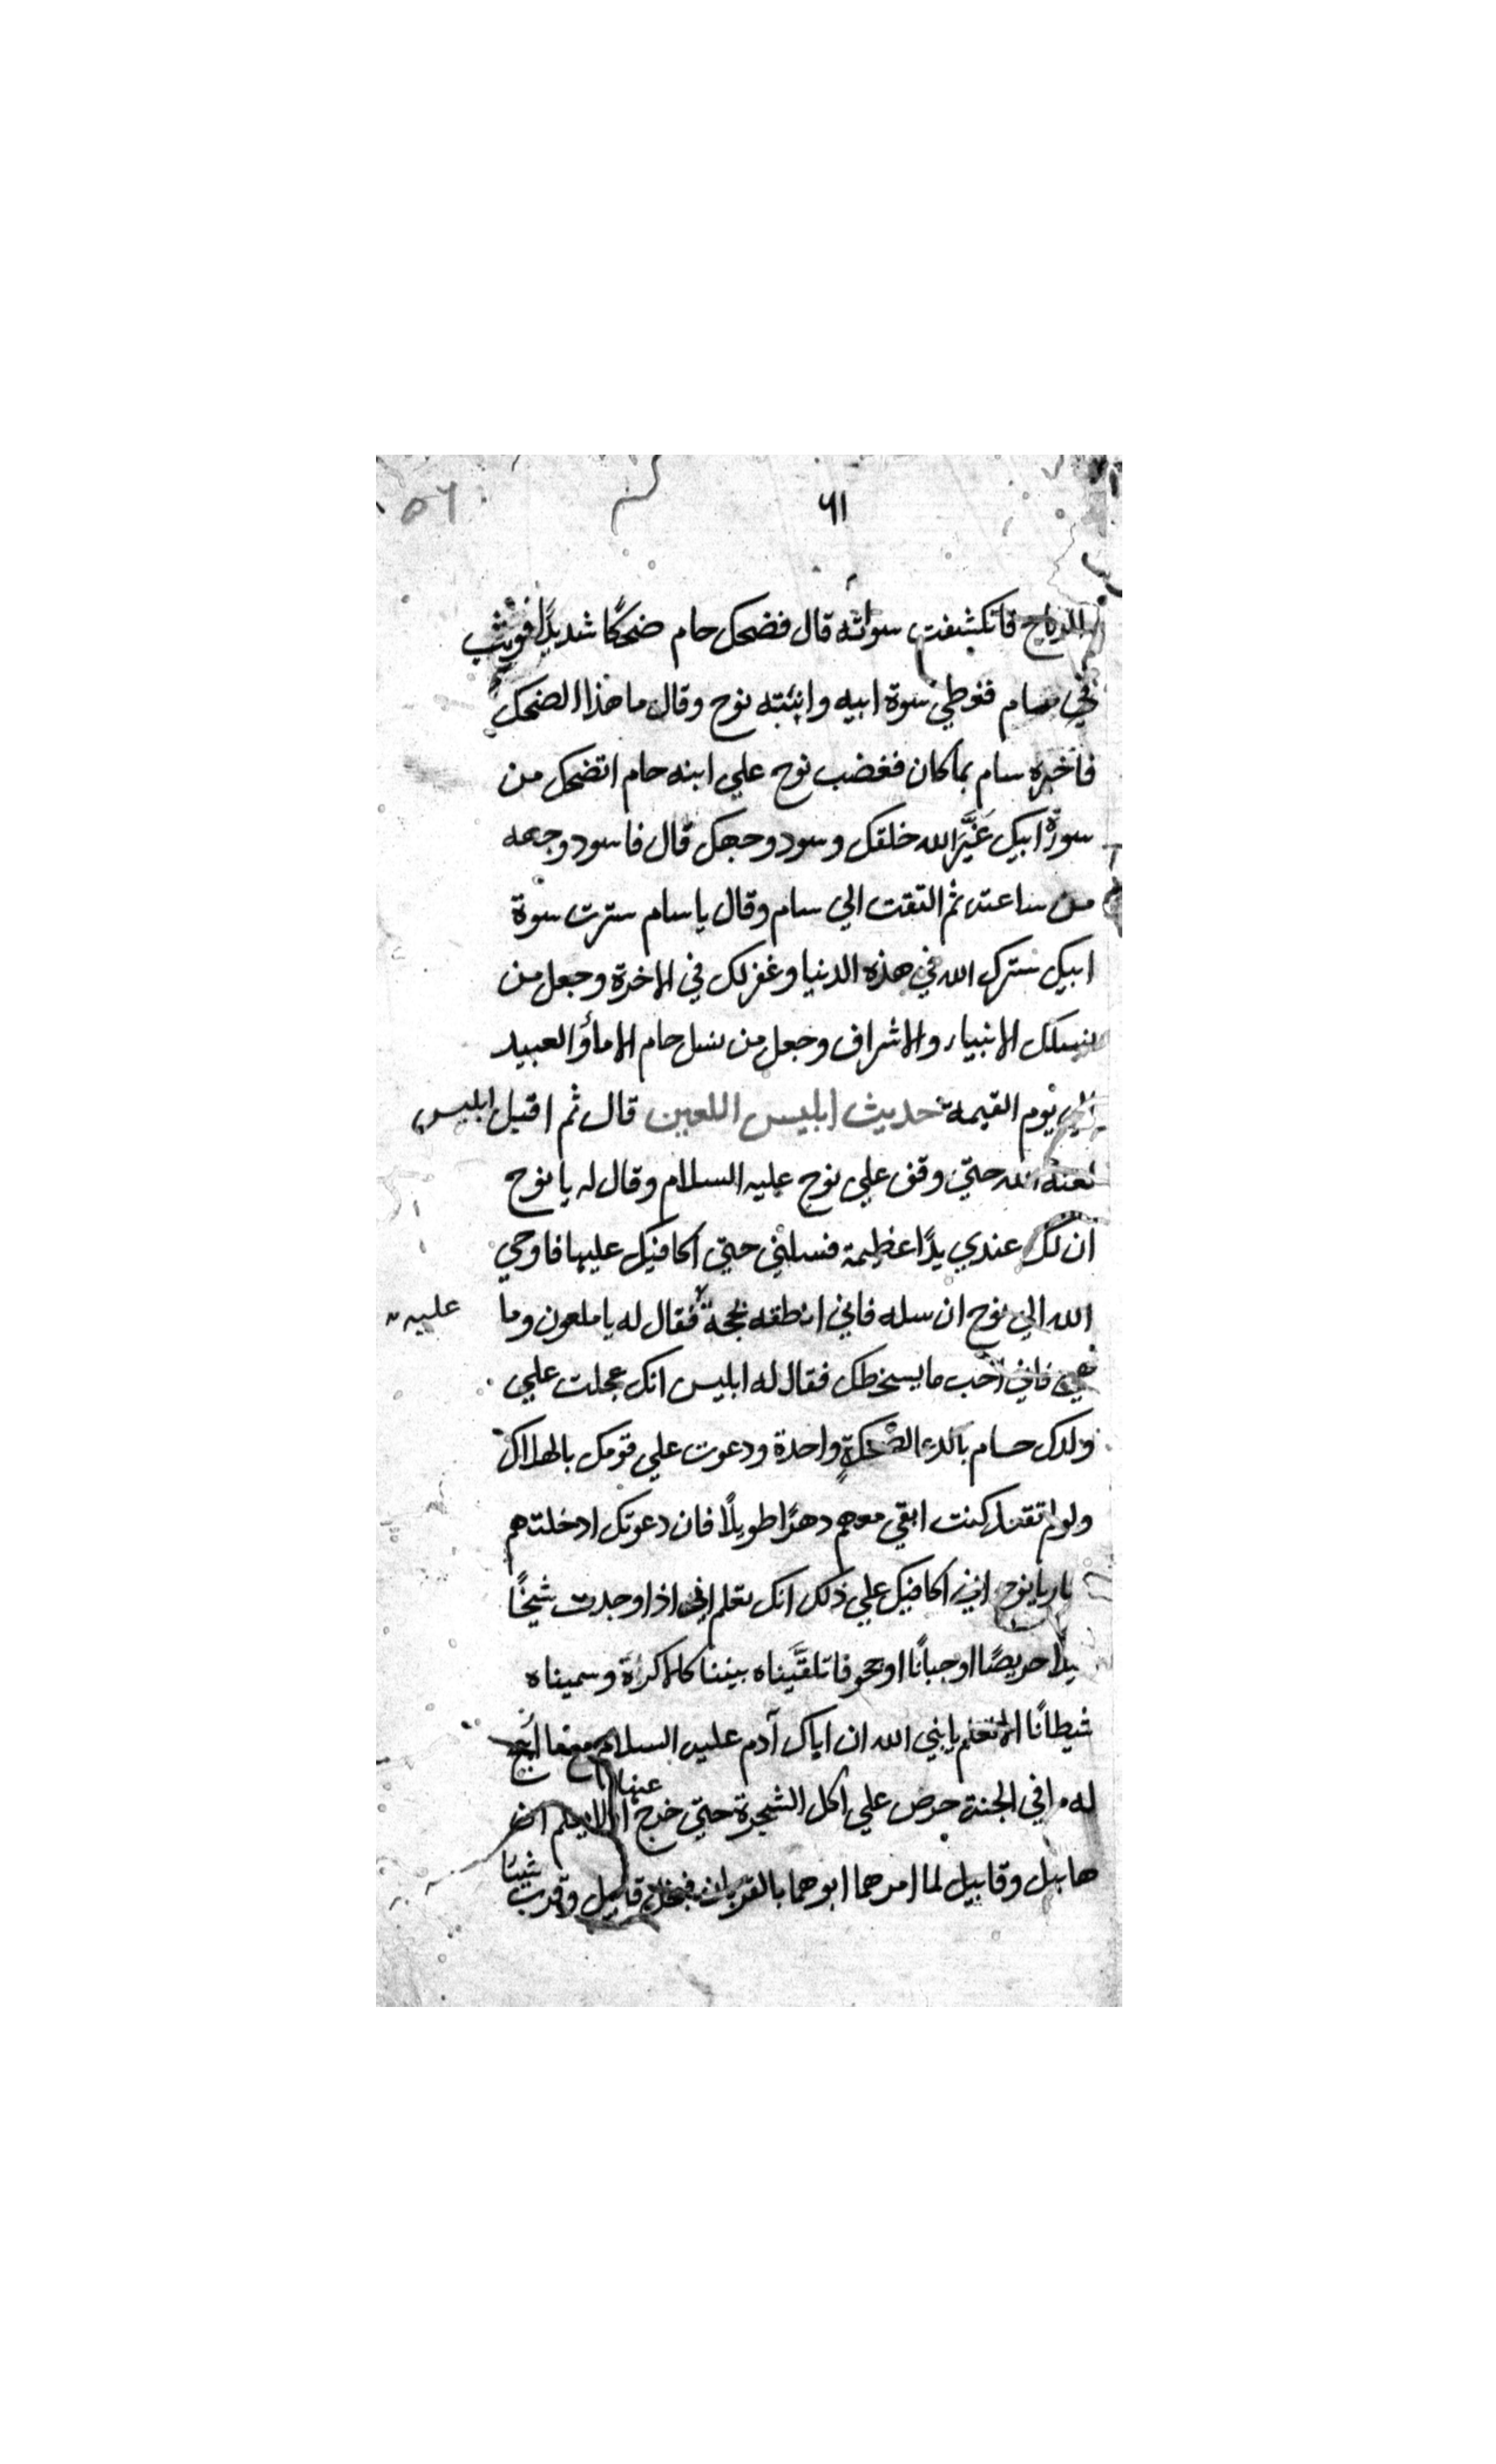 ٦١
٥٦
الرياح فانكشفت سواته قال فضحك حام ضحكًا شديدًا فوثب
سام فغطي سوة ابيه وانتبه نوح وقال ما هذا الضحك
فاخبره سام بما كان فغضب نوح علي ابنه حام اتضحك من
سورة ابيك غَيَّر الله خلقك وسود وجهك قال فاسود وجهه
من ساعته ثم التفت الي سام وقال يا سام سترت سوة
ابيك سترك الله في هذه الدنيا وغفر لك في الاخرة وجعل من
نسلك الانبياء والاشراف وجعل من نسل حام الاماؤ العبيد
الي يوم القيمة حديث ابليس اللعين قال ثم اقبل ابليس
لعنه الله حتي وقف علي نوح عليه السلام وقال له يا نوح
ان لك عندي يدًا عظيمة فسلني حتي اكافيك عليها فاوحي
الله الي نوح ان سله فاني انطقه بحجة فقال له يا ملعون وما
عليه
هي فاني احب ما يسخطك فقال له ابليس انك عجلت علي
ولدك حسام واحدة ودعوت علي قومك بالهلاك
ولو لم تفعل كنت ابقي معهم دهرًا طويلًا فان دعوتك ادخلتهم
يا نوح اني اكافيك علي ذلك انك تعلم اني اذا وجدت شيخًا
حريصًا او جبانًا او تلقَّيناه بيننا كالاكرة وسميناه
شيطانًا الم تعلم يا نبي الله ان اباك آدم عليه السلام
له ما في الجنة حرص علي اكل الشجرة حتي خرج
عنها
هابيل وقابيل لما امرهما ابوهما بالقربان فبخل قابيل وقرب
شيئا